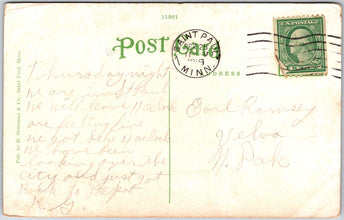 11501
Post Card
SAINT PAUL
MINN.
U.S. POSTAGE
ADDRESS
Thursday night
we are in St Paul
we will leave 11 oclock
are feeling fine
we got here 11 oclock
we have been
looking over the
city and just got
Back to Depot
R. G.
Earl Rumsey
Velva
N. Dak